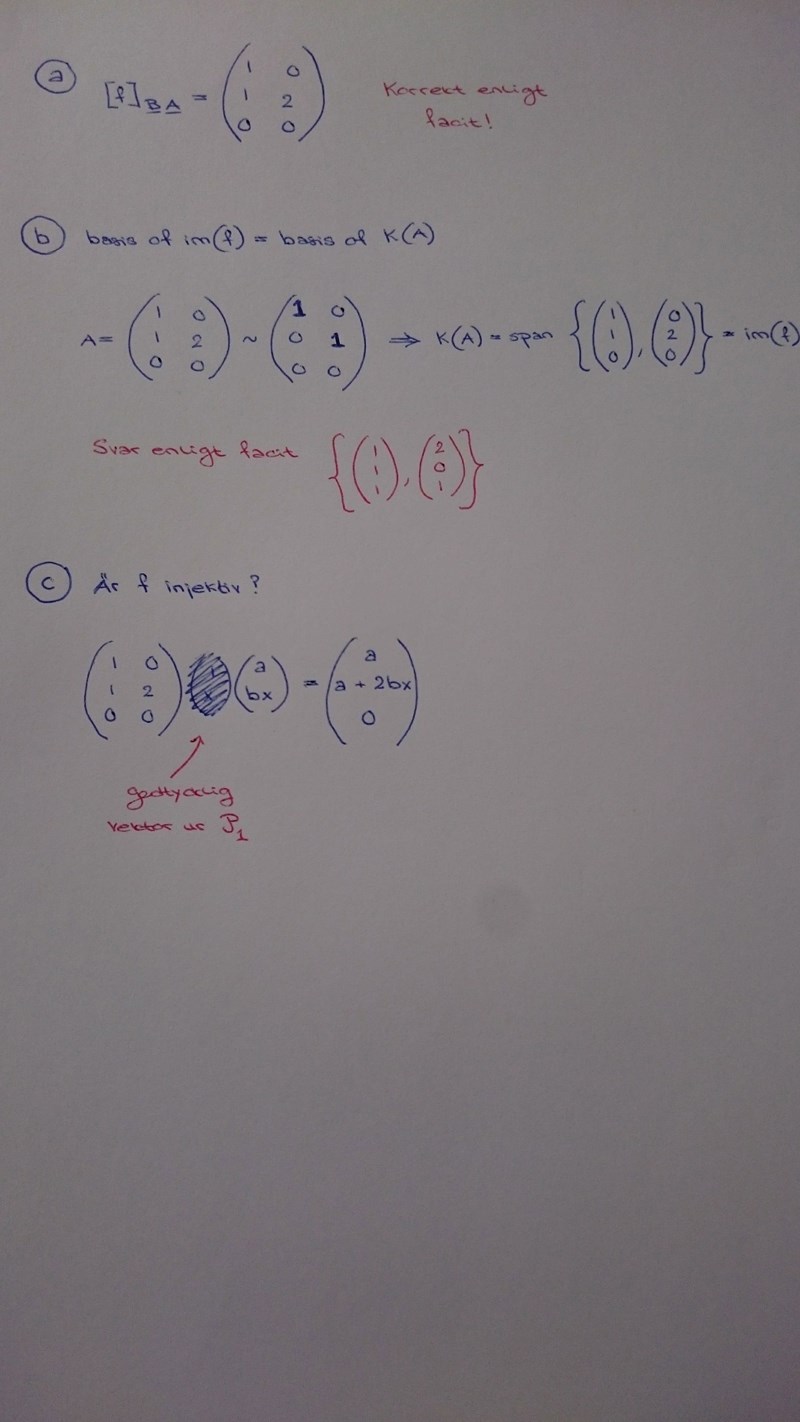 (a) [f]_BA = ( 1 0 ; 1 2 ; 0 0 ) Korrekt enligt
facit!
(b) basis of im(f) = basis of K(A)
A = ( 1 0 ; 1 2 ; 0 0 ) ~ ( 1 0 ; 0 1 ; 0 0 ) ⇒ K(A) = span { ( 1 ; 1 ; 0 ), ( 0 ; 2 ; 0 ) } = im(f)
Svar enligt facit { ( 1 ; 1 ; 1 ), ( 2 ; 0 ; 1 ) }
(c) Är f injektiv?
( 1 0 ; 1 2 ; 0 0 ) ( a ; bx ) = ( a ; a + 2bx ; 0 )
godtycklig
vektor ur P_1